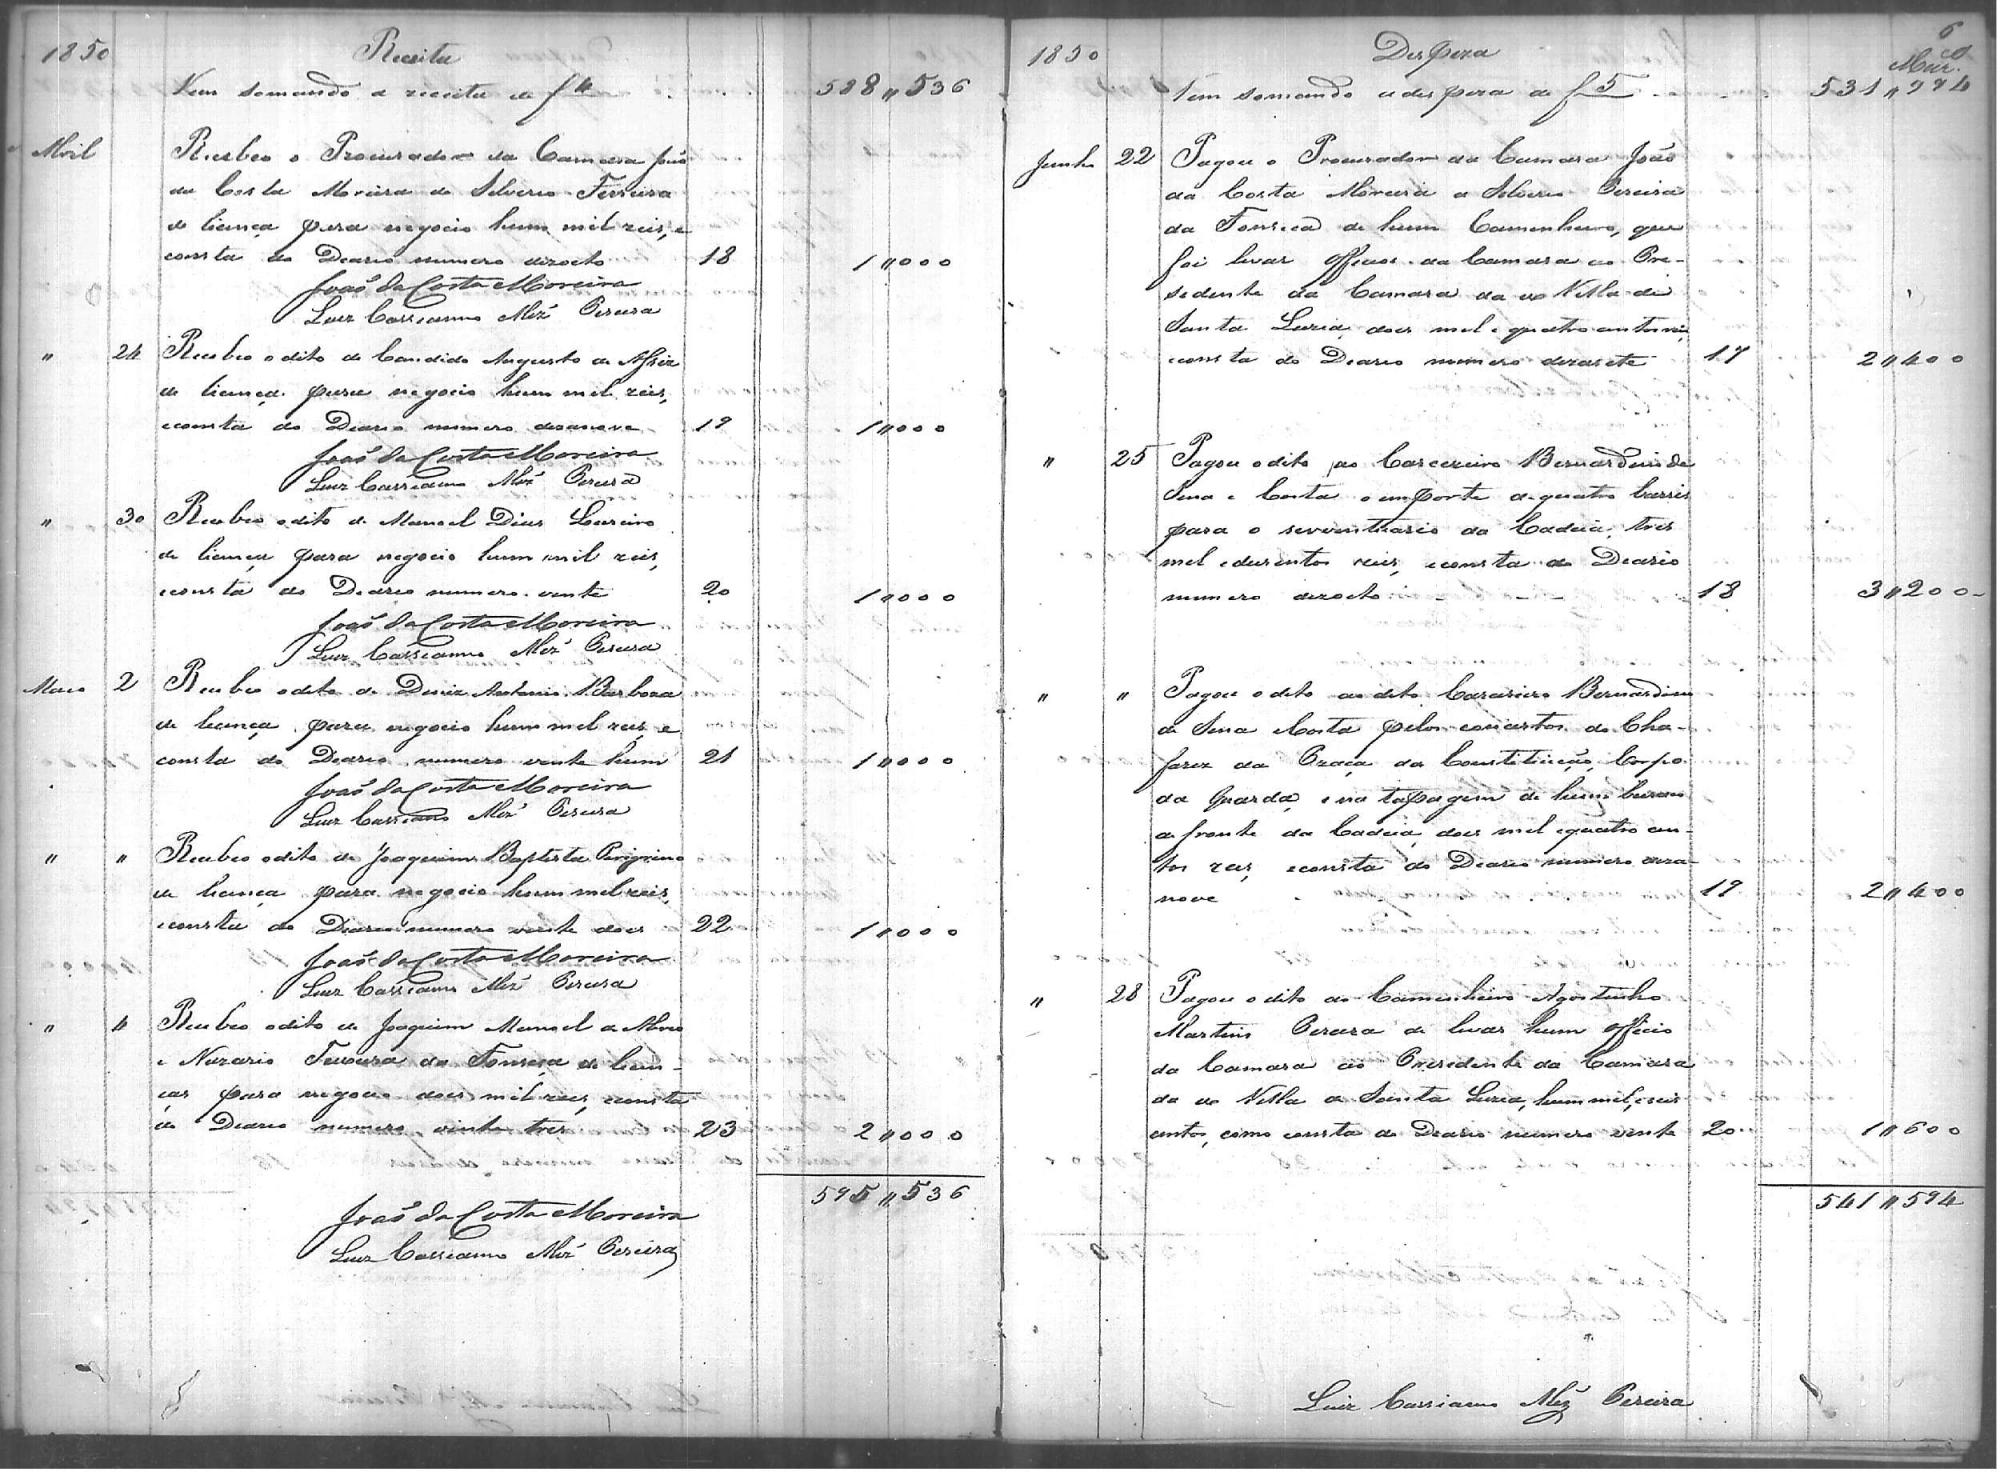 1850
Receita
Vem somando a receita de f 4 588,,536
Abril Recebeo o Procurador da Camara João
da Costa Moreira de Silverio Ferreira
de licença para negocio hum mil reis, e
consta do Deario numero dezoito 18 1,,000
João da Costa Moreira
Luiz Cassianno Miz Pereira
,, 24 Recebeo o dito de Candido Augusto de Assiz
de licença para negocio hum mil reis,
e consta do Deario numero dezanove 19 1,,000
João da Costa Moreira
Luiz Cassianno Miz Pereira
,, 30 Recebeo o dito de Manoel Dias Loureiro
de licença para negocio hum mil reis,
e consta do Deario numero vinte 20 1,,000
João da Costa Moreira
Luiz Cassianno Miz Pereira
Maio 2 Recebeo o dito de Diniz Antonio Barboza
de licença para negocio hum mil reis, e
consta do Deario numero vinte hum 21 1,,000
João da Costa Moreira
Luiz Cassianno Miz Pereira
,, ,, Recebeo o dito de Joaquim Baptista Perigrino
de licença para negocio hum mil reis,
e consta do Deario numero vinte dois 22 1,,000
João da Costa Moreira
Luiz Cassianno Miz Pereira
,, 4 Recebeo o dito de Joaquim Manoel de
e Nazario da Fonseca de licen-
ças para negocio dois mil reis, e consta
do Deario numero vinte tres 23 2,,000
595,,536
João da Costa Moreira
Luiz Cassianno Miz Pereira
6
1850
Despeza
Vem somando a despeza de f 5 531,,994
Junho 22 Pagou o Procurador da Camara João
da Costa Moreira a Silverio Pereira
da Fonseca de hum Camenheiro, que
foi levar officios da Camara ao Pre-
sedente da Camara da va Villa de
Santa Luzia, dois mil e quatro centos reis,
e consta do Deario numero dezasete 17 2,,400
,, 25 Pagou o dito ao Carcereiro Bernardino de
Sena e Costa o importe de quatro barris
para o serventuario da Cadeia, tres
mil e duzentos reis, e consta do Deario
numero dezoito 18 3,,200
,, ,, Pagou o dito ao dito Carcereiro Bernardino
de Sena e Costa pelos concertos do Cha-
fariz da Praça da Constituição, Corpo
da Guarda, e na tapagem de hum buraco
de fronte da Cadeia, dois mil e quatro cen-
tos reis, e consta do Deario numero deza-
nove 19 2,,400
,, 28 Pagou o dito ao Camenheiro Agostinho
Martins Pereira de levar hum officio
da Camara ao Presedente da Camara
da va Villa de Santa Luzia, hum mil, e seis
centos, como consta do Deario numero vinte 20 1,,600
541,,594
Luiz Cassianno Miz Pereira